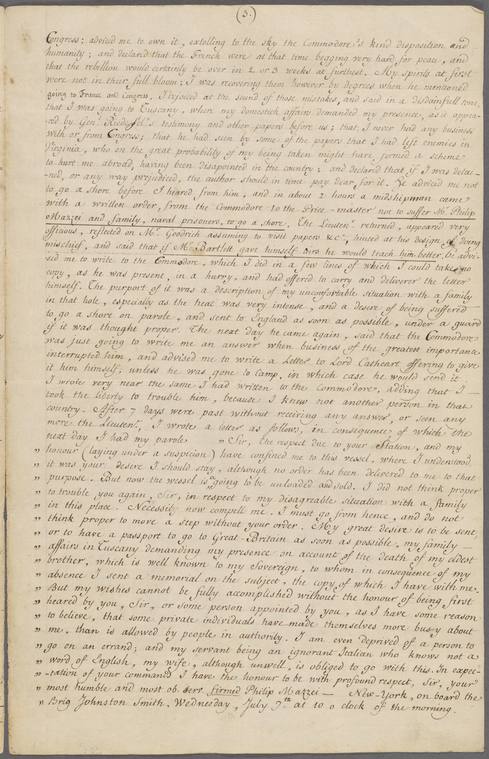 (3.)
Congress; advised me to own it, extolling to the sky the Commodore's kind disposition and
humanity; and declared that the French were at that time begging very hard for peace, and
that the rebellion would certainly be over in 2 or 3 weeks at furthest. My spirits at first
were not in their full bloom; I was recovering them however by degrees when he mentioned
going to France and Congress. I rejoiced at the sound of those mistakes, and said in a disdainfull tone,
that I was going to Tuscany, where my domestick affairs demanded my presence, as it appea-
red by Gen.l Riedesel's testimony and other papers before us; that I never had any business
with or from Congress; that he had seen by some of the papers that I had left enemies in
Virginia, who on the great probability of my being taken might have formed a scheme
to hurt me abroad, having been disapointed in the country; and declared that if I was detai-
ned, or any way prejudiced, the author should in time pay dear for it. He advised me not
to go a shore before I heared from him, and in about 2 hours a midshipman came
with a written order, from the Commodore to the Prize-master not to suffer Mr. Philip
Mazzei and family, naval prisoners, to go a shore. The Lieuten.t returned, appeared very
officious, reflected on Mr. Goodrich assuming to visit papers &c., hinted at his design of doing
mischief, and said that if Mr. Bartlett gave himself airs he would teach him better, he advi-
sed me to write to the Commodore, which I did in a few lines of which I could take no
copy, as he was present, in a hurry, and had offered to carry and deliverer the letter
himself. The purport of it was a description of my uncomfortable situation with a family
in that hole, especially as the heat was very intense, and a desire of being suffered
to go a shore on parole, and sent to England as soon as possible, under a guard
if it was thought proper. The next day he came again, said that the Commodore
was just going to write me an answer when business of the greatest importance
interrupted him, and advised me to write a Letter to Lord Cathcart offering to give
it him himself, unless he was gone to Camp, in which case he would send it.
I wrote very near the same I had written to the Commodore, adding that I
took the liberty to trouble him, because I knew not another person in that
country. After 7 days were past without receiving any answer, or seen any
more the Lieuten.t, I wrote a letter as follows, in consequence of which the
next day I had my parole. " Sir, the respect due to your Station, and my
" honour (laying under a suspicion) have confined me to this vessel, where I understood
" it was your desire I should stay, although no order has been delivered to me to that
" purpose. But now the vessel is going to be unloaded and sold. I did not think proper
" to trouble you again, Sir, in respect to my disagreable situation with a family
" in this place. Necessity now compell me. I must go from hence, and do not
" think proper to move a step without your order. My great desire is to be sent,
" or to have a passport to go to Great-Britain as soon as possible, my family
" affairs in Tuscany demanding my presence on account of the death of my eldest
" brother, which is well known to my Sovereign, to whom in consequence of my
" absence I sent a memorial on the subject, the copy of which I have with me.
" But my wishes cannot be fully accomplished without the honour of being first
" heared by you, Sir, or some person appointed by you, as I have some reason
" to believe, that some private individuals have made themselves more busey about
" me, than is allowed by people in authority. I am even deprived of a person to
" go on an errand; and my servant being an ignorant Italian who knows not a
" word of English, my wife, although unwell, is obliged to go with this. In expec-
" -tation of your command I have the honour to be with profound respect, Sir, your
" most humble and most ob. Sert. firmed Philip Mazzei — New-York, on board the
" Brig Johnston Smith, Wednesday, July 7th at 10 o clock of the morning.